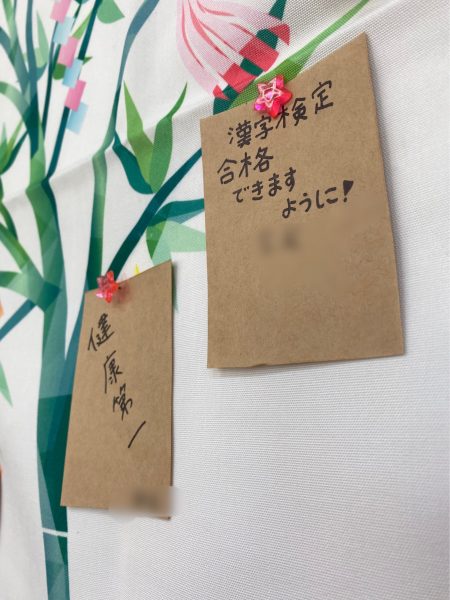 漢字検定
合格
できます
ように!
健康第一